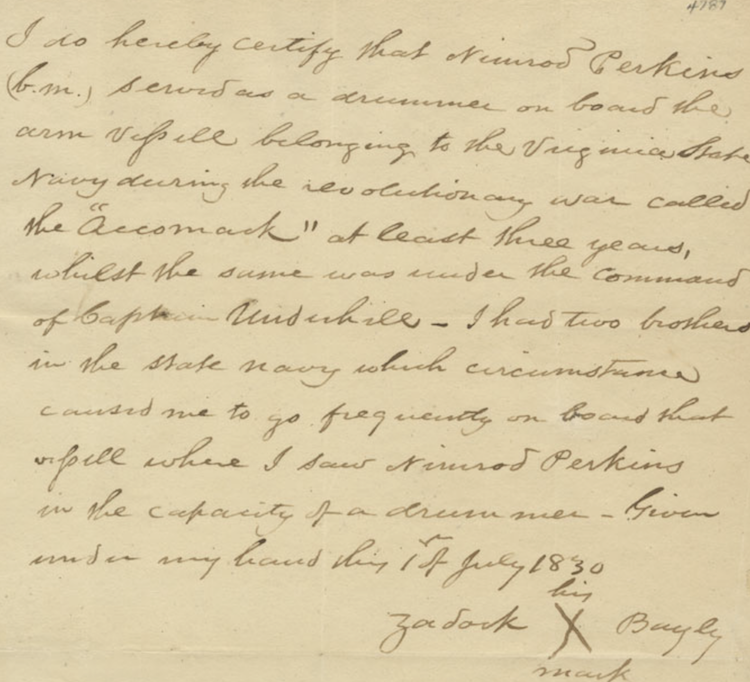 4787
I do hereby certify that Nimrod Perkins
(b.m.) served as a drummer on board the
arm Vessell belonging to the Virginia State
Navy during the revolutionary war called
the "Accomack" at least three years,
whilst the same was under the command
of Captain Underhill – I had two brothers
in the state navy which circumstance
caused me to go frequently on board that
vessell where I saw Nimrod Perkins
in the capacity of a drummer – Given
under my hand this 1st of July 1830
his
Zadock X Bayly
mark